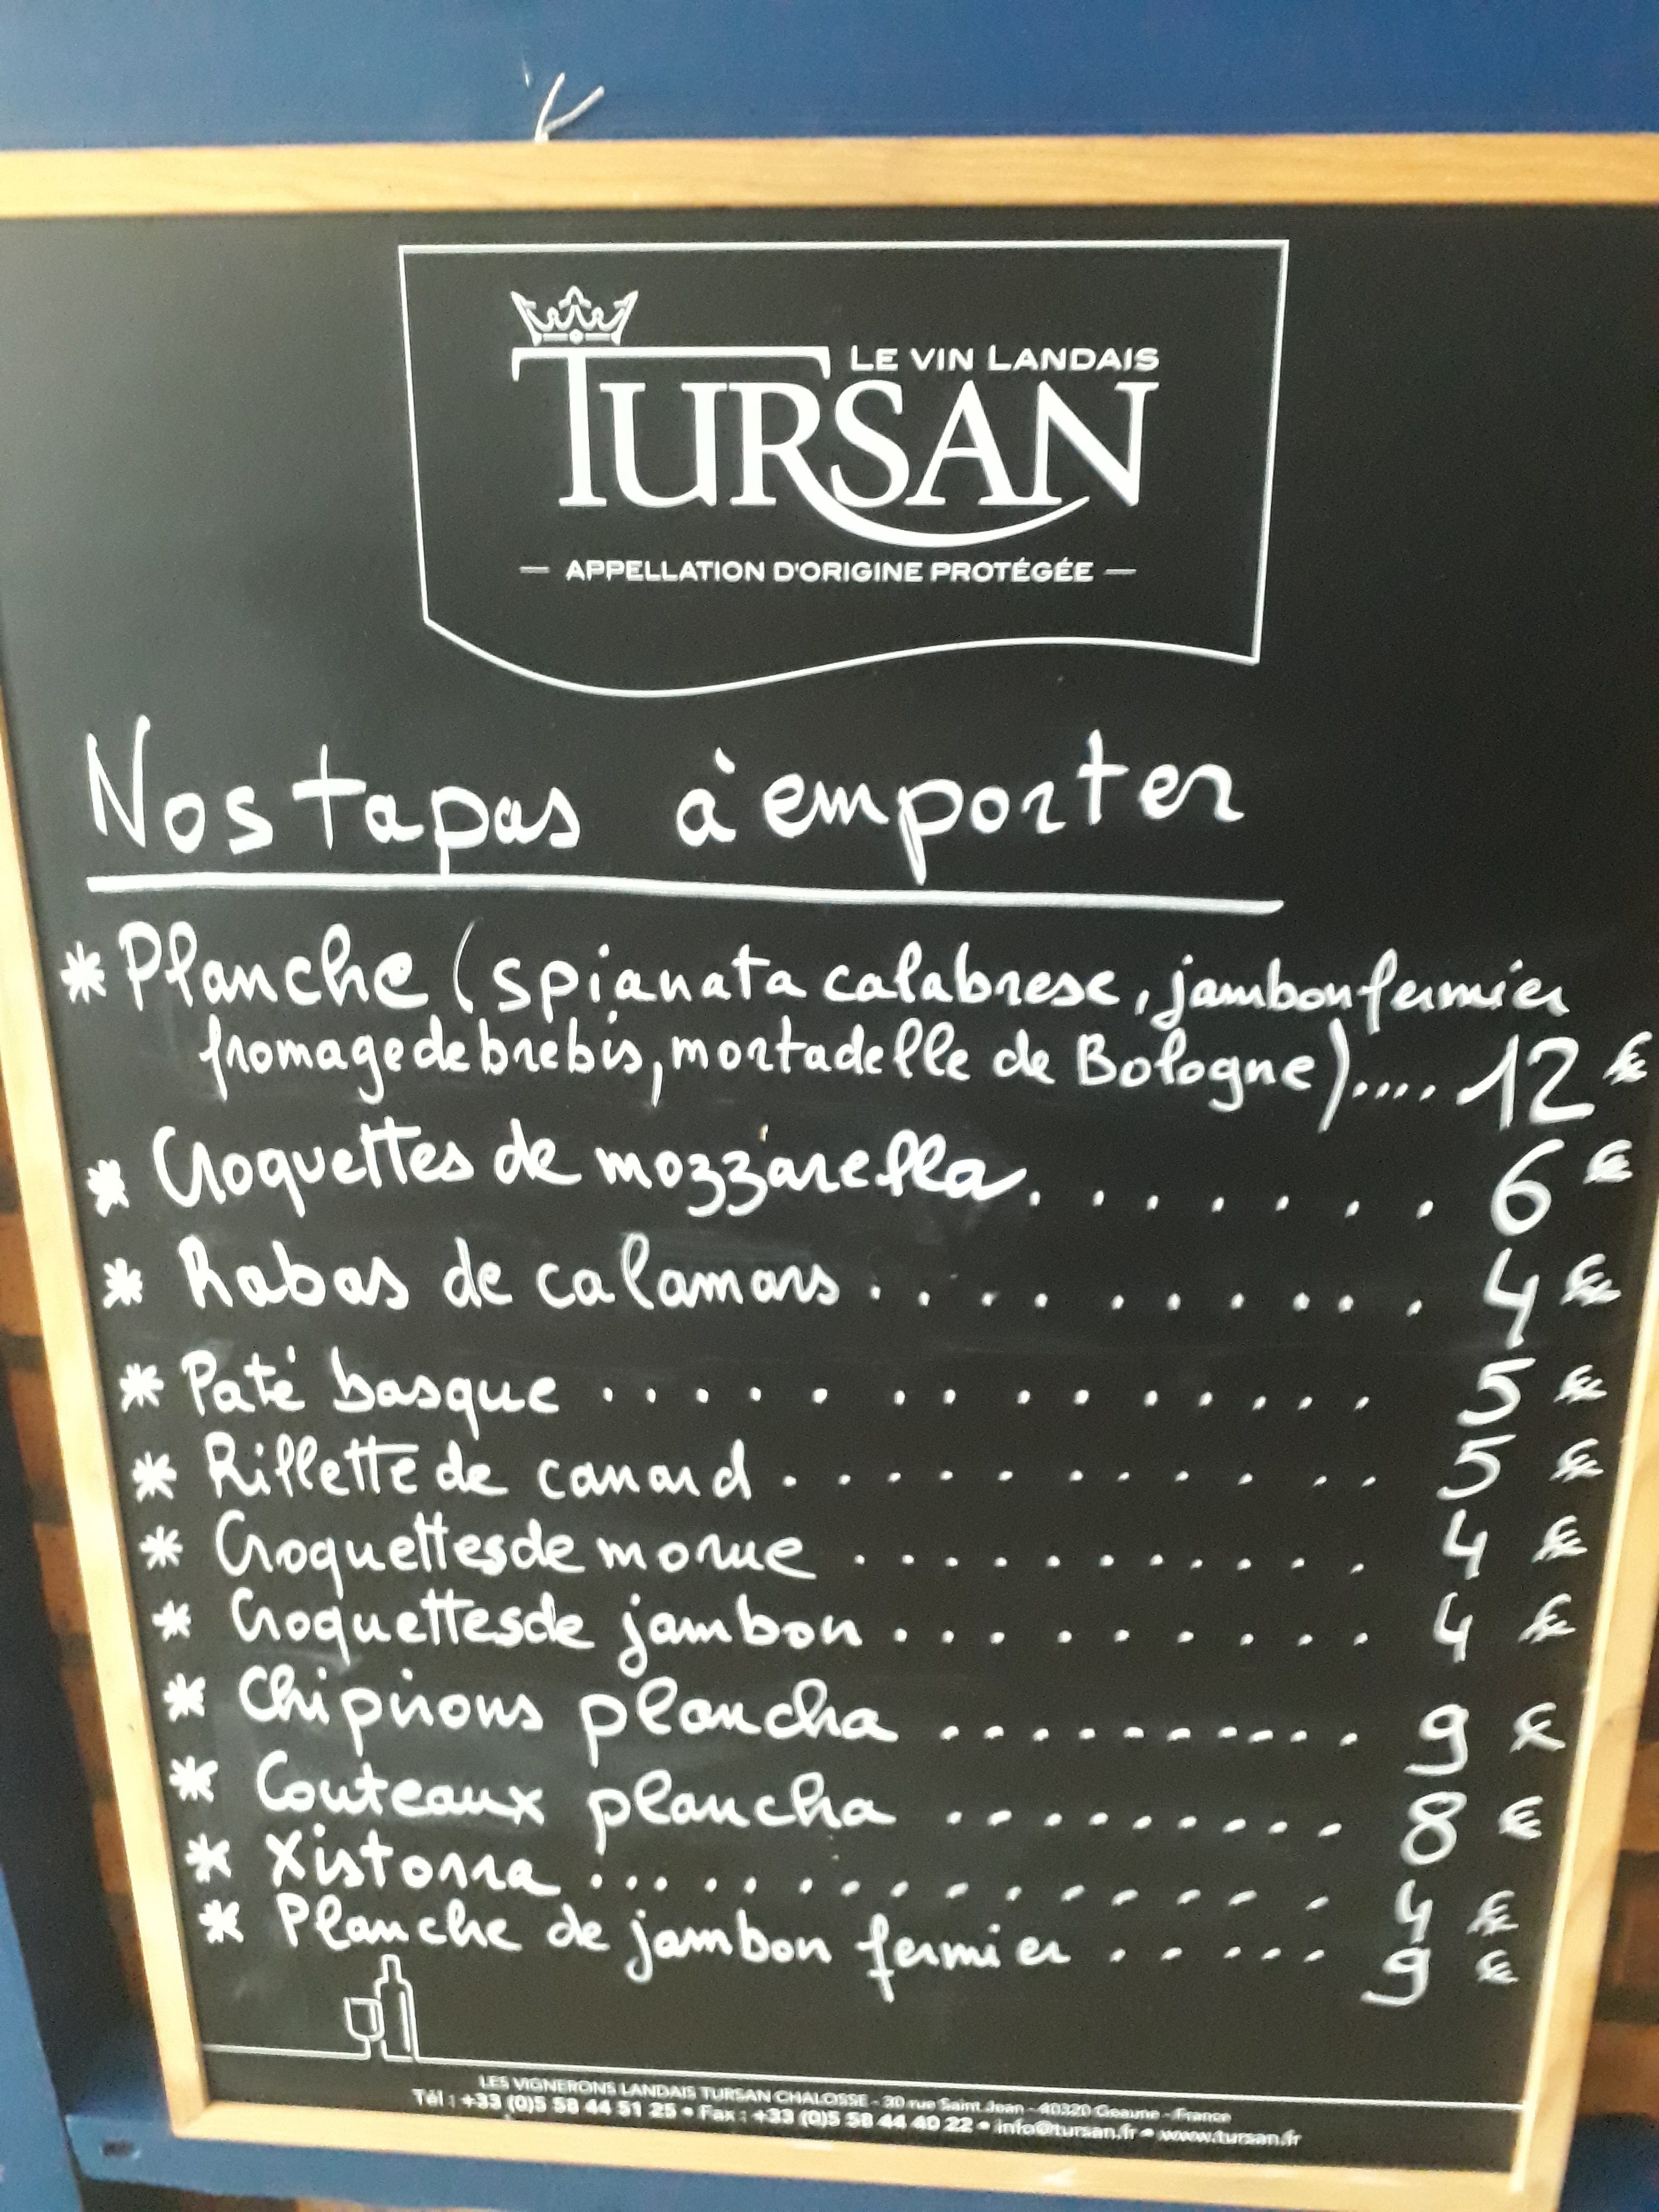 LE VIN LANDAIS
TURSAN
— APPELLATION D'ORIGINE PROTÉGÉE —
Nos tapas à emporter
* Planche (spianata calabrese, jambon fermier
fromage de brebis, mortadelle de Bologne).... 12 €
* Croquettes de mozzarella. . . . . . . 6 €
* Rabas de calamars . . . . . . . . . . 4 €
* Paté basque . . . . . . . . . . . . . . 5 €
* Rillette de canard . . . . . . . . . . . . 5 €
* Croquettes de morue . . . . . . . . . . . 4 €
* Croquettes de jambon . . . . . . . . . . 4 €
* Chipirons plancha . . . . . . . . . . 9 €
* Couteaux plancha . . . . . . . . . 8 €
* Xistorra . . . . . . . . . . . . . . 4 €
* Planche de jambon fermier . . . . . . 9 €
LES VIGNERONS LANDAIS TURSAN CHALOSSE - 30 rue Saint Jean - 40320 Geaune - France
Tél : +33 (0)5 58 44 51 25 • Fax : +33 (0)5 58 44 40 22 • info@tursan.fr • www.tursan.fr